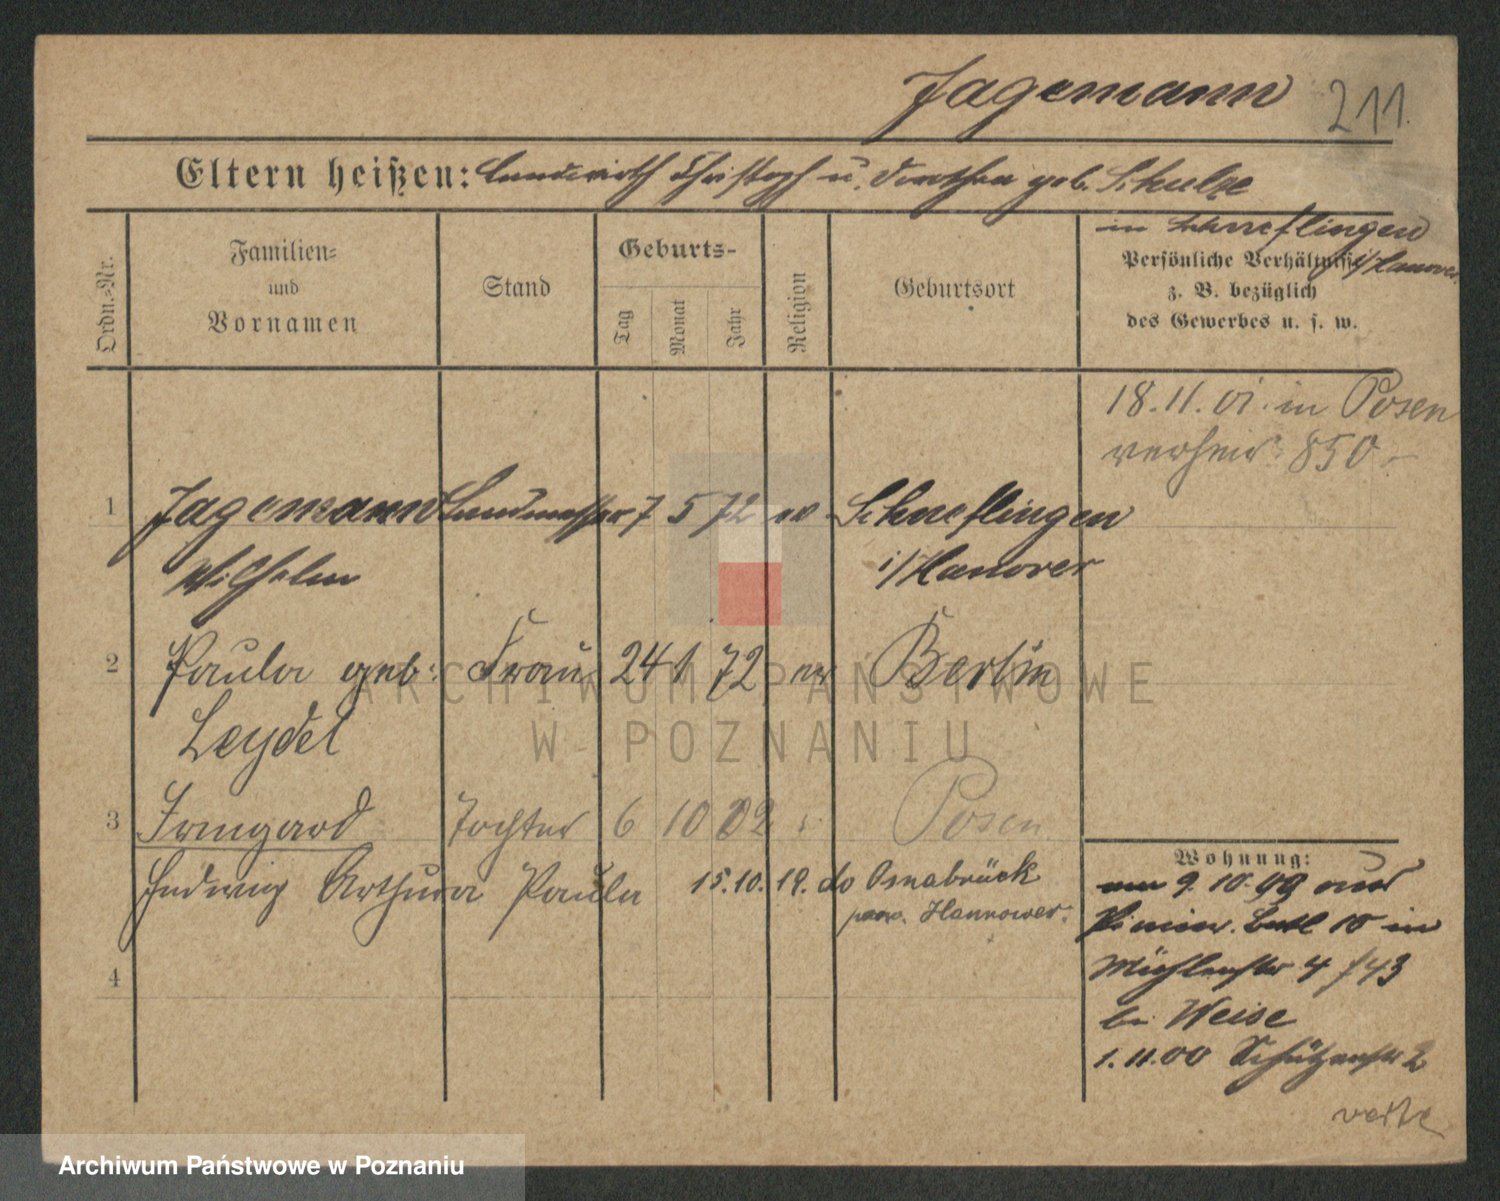 Jagemann 211.
Eltern heißen: Landwirth Christoph u. Dorothea geb. Schulze
in Schneflingen
i/Hanover
Ordn.-Nr.
Familien-
und
Vornamen
Stand
Geburts-
Tag
Monat
Jahr
Religion
Geburtsort
Persönliche Verhältnisse
z. B. bezüglich
des Gewerbes u. s. w.
18.11.01. in Posen
verheir. 850
1 Jagemann Landmesser 7 5 72 ev Schneflingen
Wilhelm i/Hanover
2 Paula geb: Frau 24 1 72 ev Berlin
Leydel
3 Irmgard Tochter 6 10 02 Posen
Hedwig Arthura Paula 15.10.19. do Osnabrück
prov. Hannower.
4
Wohnung:
9.10.99 aus
10 in
Mühlenstr 4 /43
bei Weise
1.11.00 Schützenstr 2
verte
ARCHIWUM PAŃSTWOWE
W POZNANIU
Archiwum Państwowe w Poznaniu